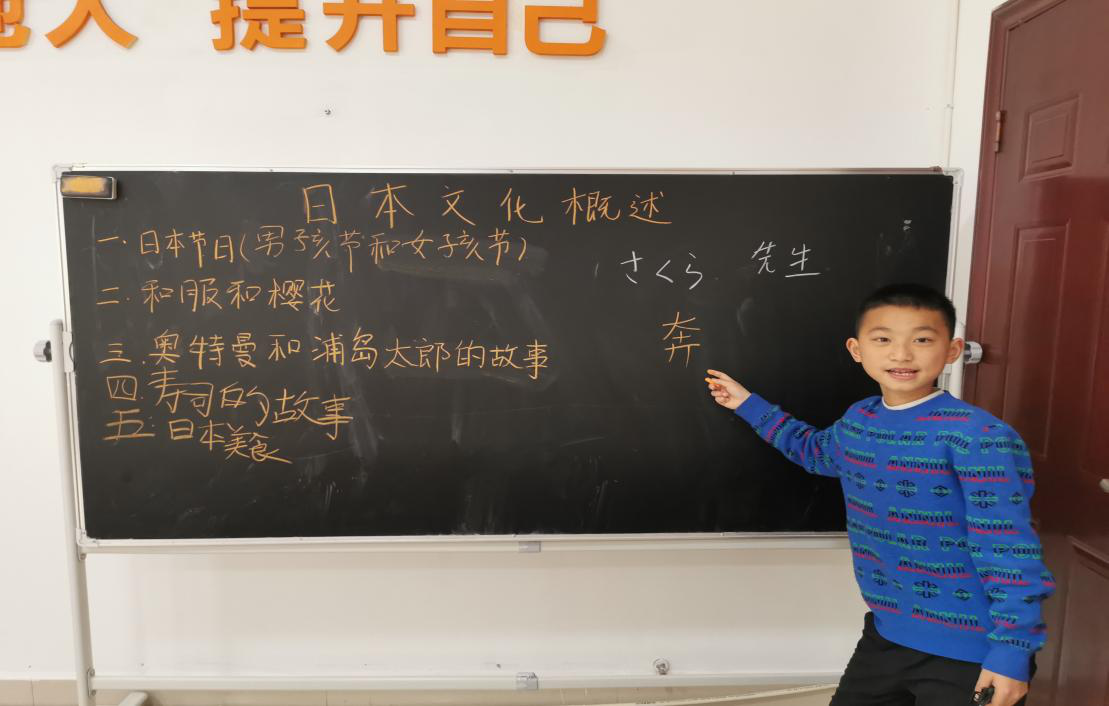 人 提升自己
日本文化概述
一.日本节日(男孩节和女孩节)
二.和服和樱花
三.奥特曼和浦岛太郎的故事
四.寿司的故事
五.日本美食
さくら 先生
奔